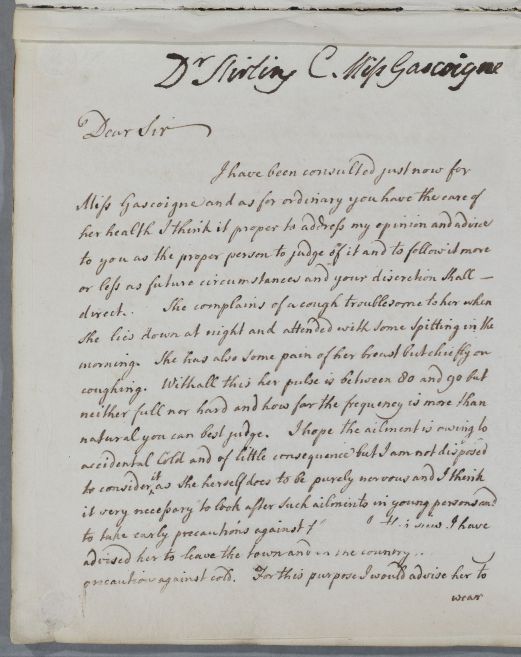 Dr Stirling C. Miſs Gascoigne
Dear Sir
I have been consulted just now for
Miſs Gascoigne and as for ordinary you have the care of
her health I think it proper to address my opinion and advice
to you as the proper person to judge of it and to follow it more
or leſs as future circumstances and your discretion shall —
direct. She complains of a cough troublesome to her when
She lies down at night and attended with some Spitting in the
morning. She has also some pain of her breast but chiefly on
coughing. Withall this her pulse is between 80 and 90 but
neither full nor hard and how far the frequency is more than
natural you can best judge. I hope the ailment is owing to
accidental Cold and of little consequence but I am not disposed
to consider it as She herself does to be purely nervous and I think
it very neceſsary to look after such ailments in young persons and
to take early precautions against I have
advised her to leave the town and in the country
precaution against cold. For this purpose I would advise her to
wear